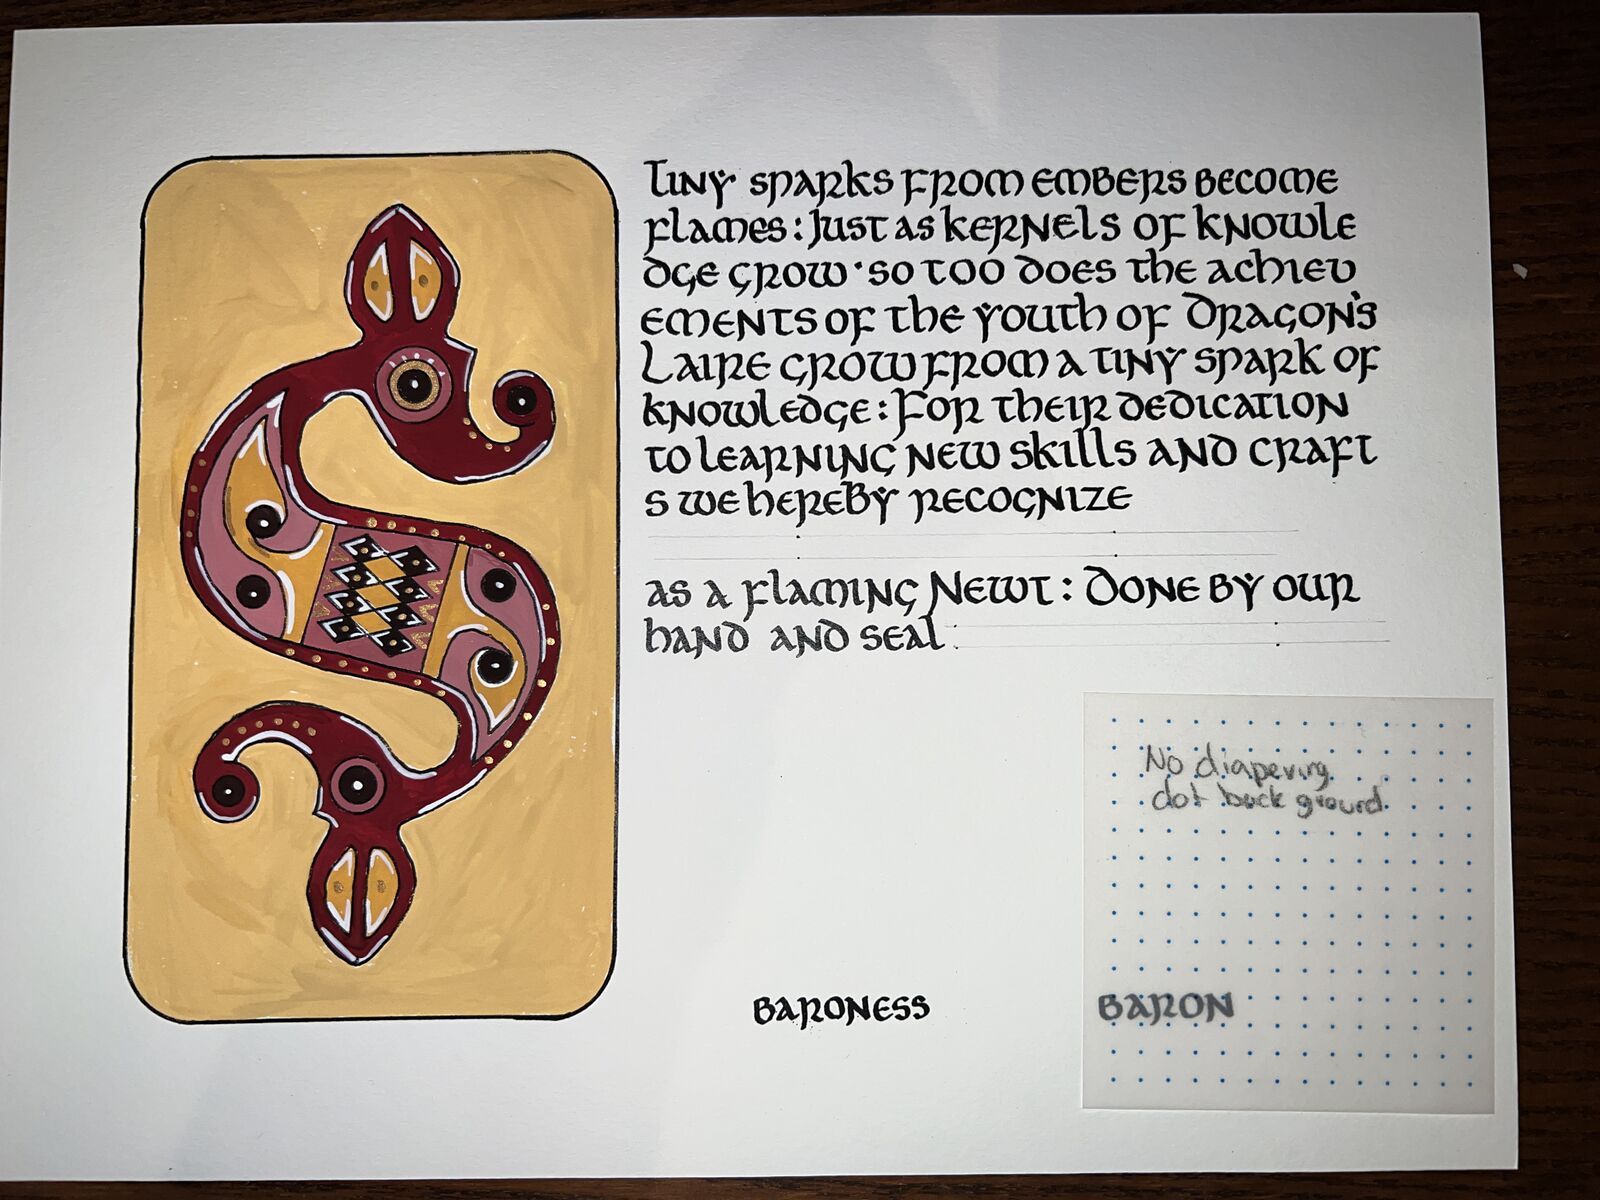 Tiny sparks from embers become
flames : Just as kernels of knowle
dge grow · so too does the achiev
ements of the youth of Dragon's
Laire grow from a tiny spark of
knowledge : For their dedication
to learning new skills and craft
s we hereby recognize
as a flaming Newt : Done by our
hand and seal
No diapering
dot back ground
Baroness
Baron